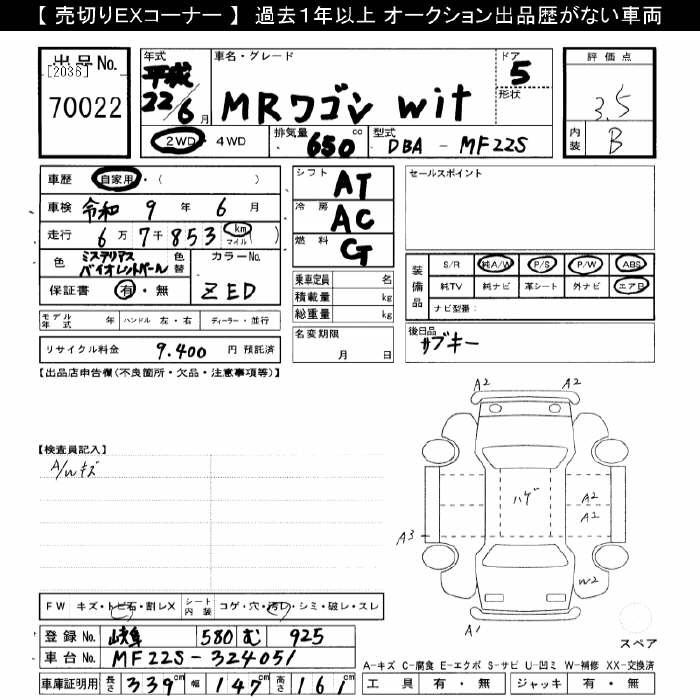 【 売切りEXコーナー 】 過去1年以上 オークション出品歴がない車両
出品No.
[2036]
70022
年式
平成
22 / 6 月
車名・グレード
MRワゴン wit
ドア
5
形状
2WD・4WD
排気量 650 cc
型式 DBA - MF22S
評価点
3.5
内装
B
車歴 自家用・( )
車検 令和 9 年 6 月
走行 6 万 7 千 853 km マイル ( )
色 ミステリアスバイオレットパール
色替
カラーNo.
ZED
保証書 有・無
モデル年式 年 ハンドル 左・右 ディーラー・並行
リサイクル料金 9,400 円 預託済
シフト AT
冷房 AC
燃料 G
乗車定員 名
積載量 kg
総重量 kg
名変期限
月 日
セールスポイント
装備品
S/R 純A/W P/S P/W ABS
純TV 純ナビ 革シート 外ナビ エアB
ナビ型番:
後日品
サブキー
【出品店申告欄(不良箇所・欠品・注意事項等)】
【検査員記入】
A/Wキズ
A2 A2
ハゲ
A2
A2
A3
W2
A1
スペア
FW キズ・トビ石・割レX
シート内装 コゲ・穴・汚レ・シミ・破レ・スレ
登録No. 岐阜 580 む 925
車台No. MF22S-324051
車庫証明用 長さ 339 cm 幅 147 cm 高さ 161 cm
A-キズ C-腐食 E-エクボ S-サビ U-凹ミ W-補修 XX-交換済
工具 有・無 ジャッキ 有・無